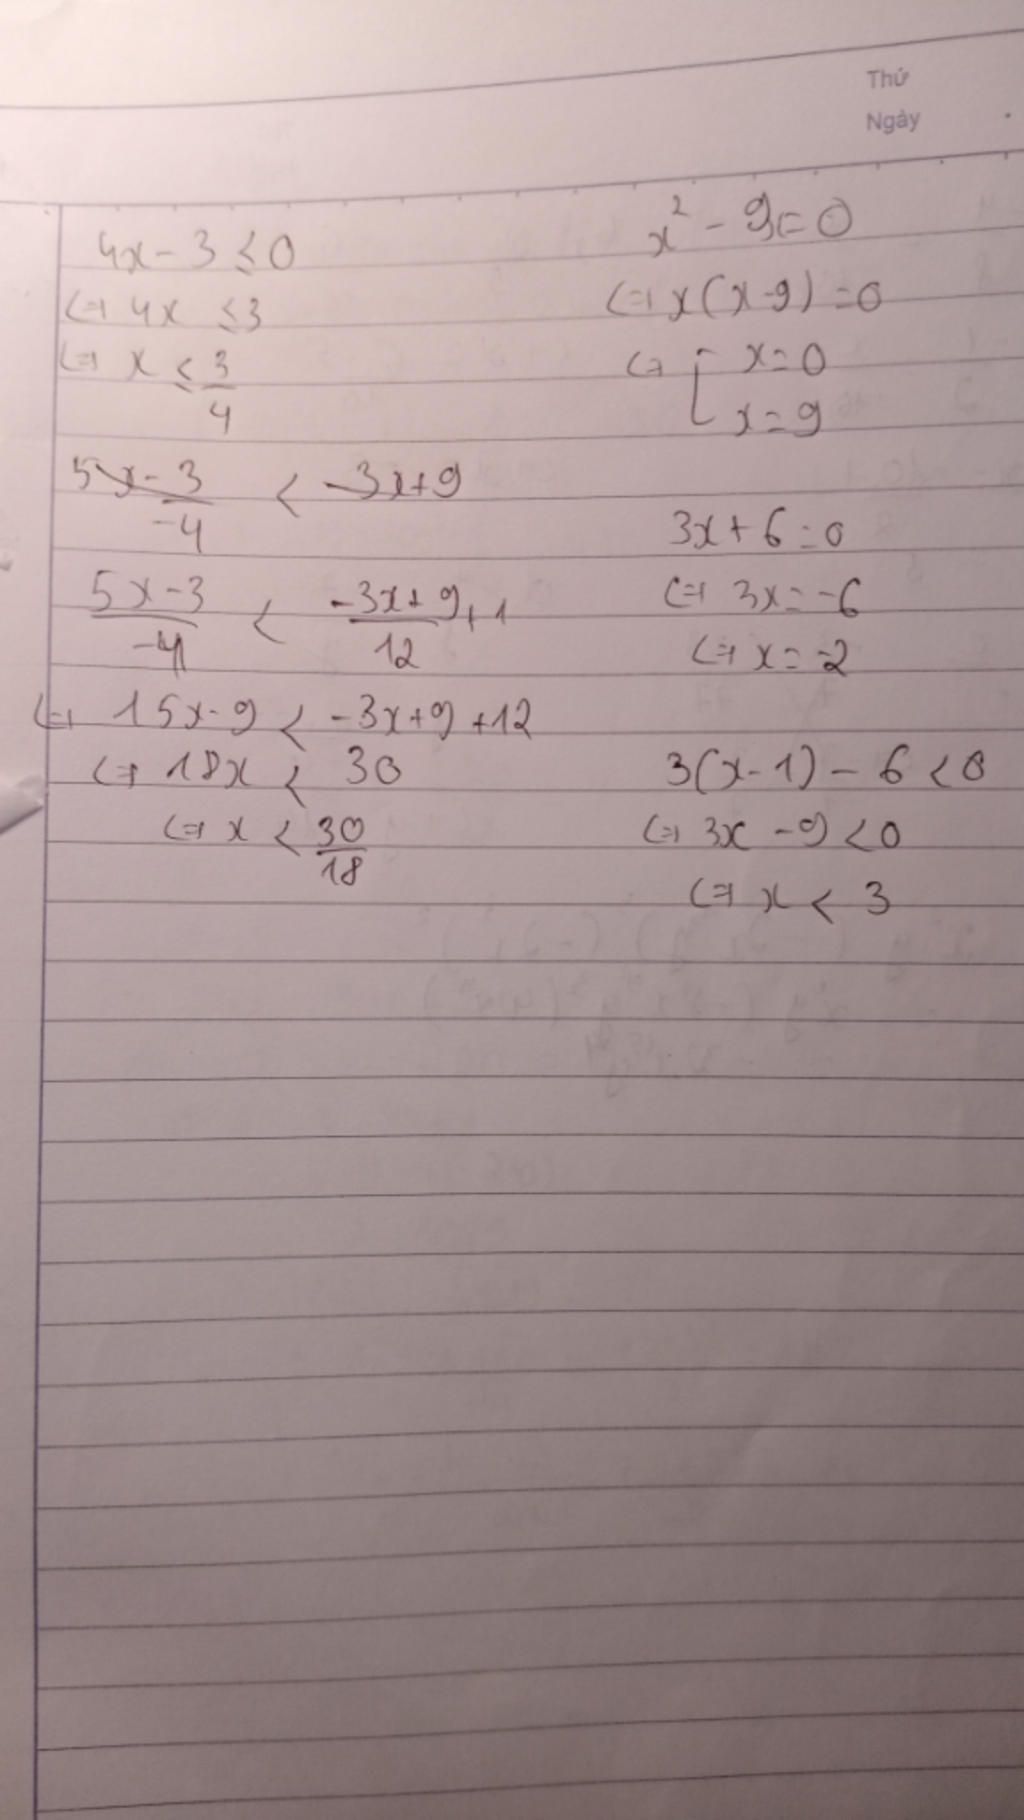 Thứ
Ngày
4x - 3 ≤ 0
⇔ 4x ≤ 3
⇔ x ≤ 3/4
5x - 3/-4 < -3x+9
(5x-3)/-4 < (-3x+9)/12 + 1
⇔ 15x-9 < -3x+9+12
⇔ 18x < 30
⇔ x < 30/18
x² - 9 = 0
⇔ x(x-9) = 0
⇔ [ x = 0
x = 9
3x + 6 = 0
⇔ 3x = -6
⇔ x = -2
3(x-1) - 6 < 0
⇔ 3x - 9 < 0
⇔ x < 3